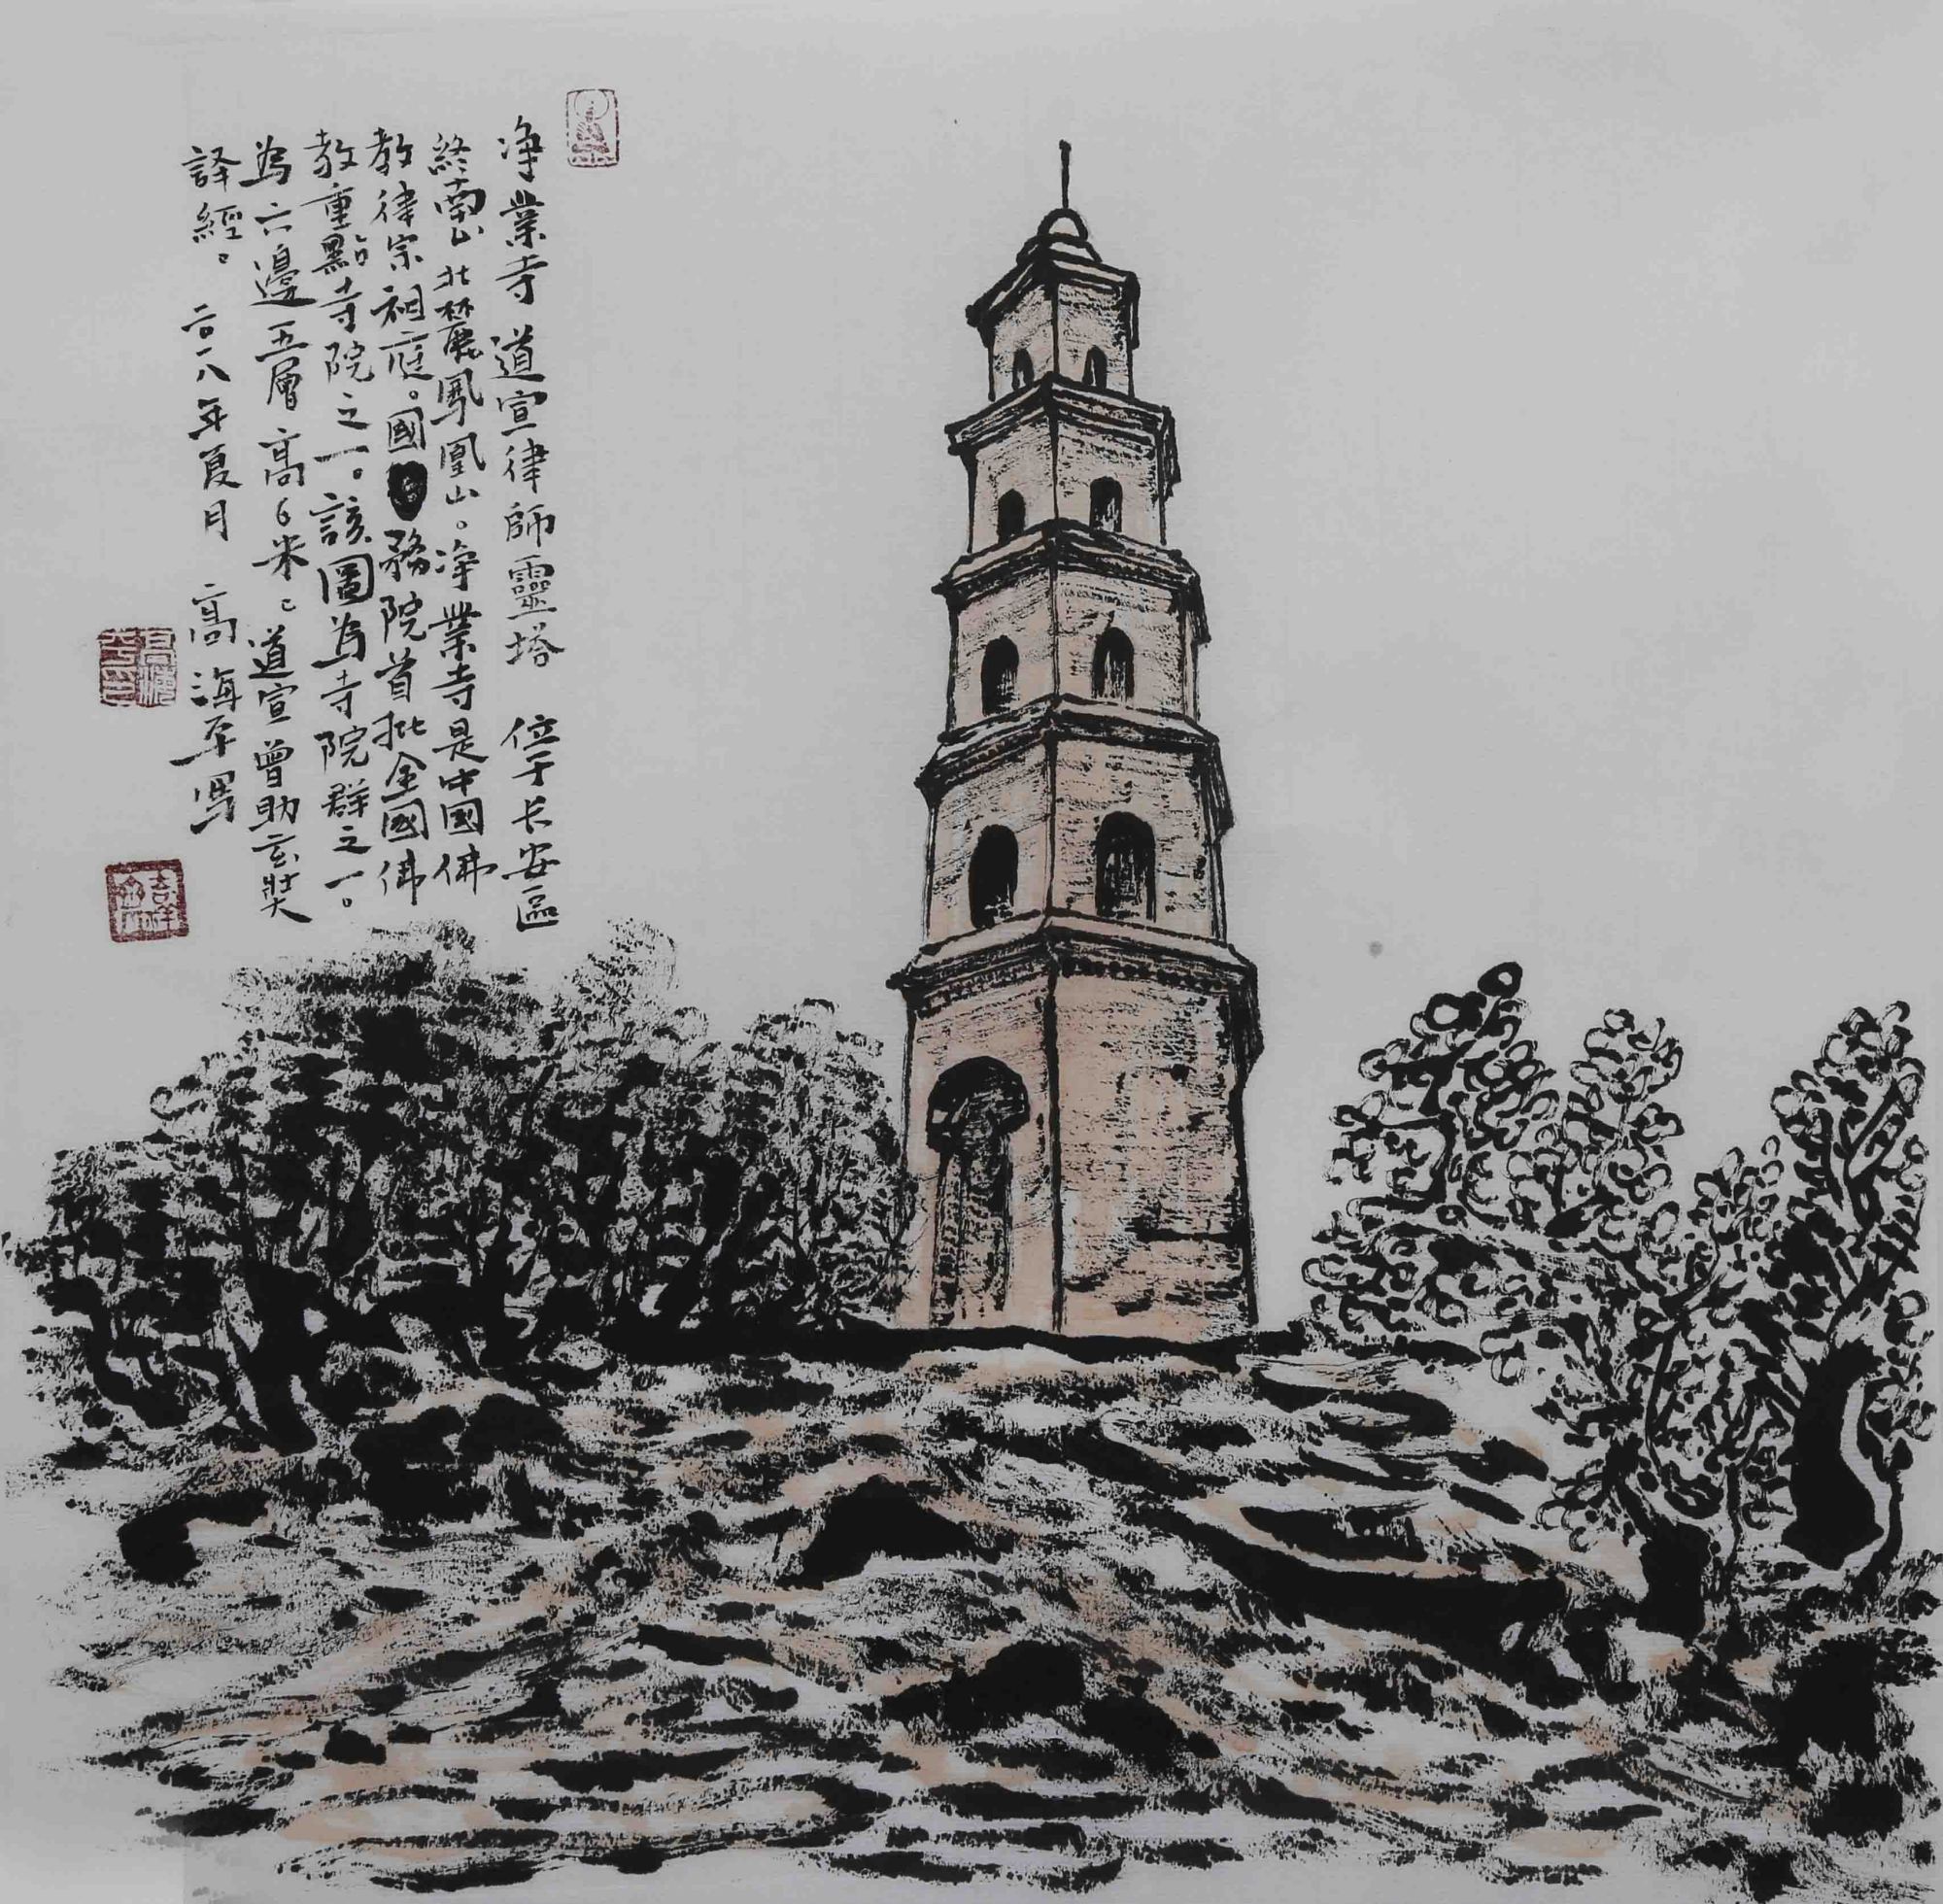 净業寺 道宣律師靈塔 位于长安區
終南山北麓鳳凰山。净業寺是中國佛
教律宗祖庭。國務院首批全國佛
教重點寺院之一。該圖為寺院群之一。
為六邊五層高6米。道宣曾助玄奘
譯經。二〇一八年夏月 高海平写